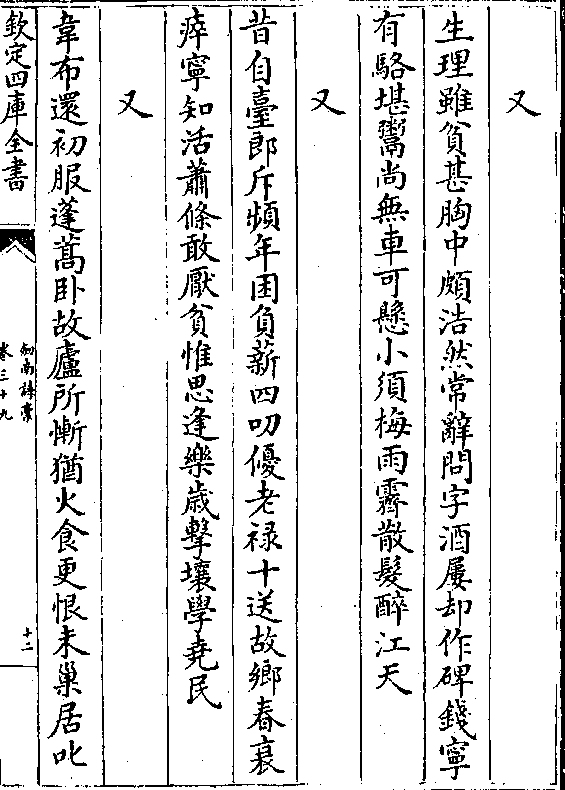 又
生理雖貧甚胸中頗浩然常辭問字酒屢却作碑錢寧
有駱堪鬻尚無車可懸小須梅雨霽散髮醉江天
又
昔自臺郎斥頻年困負薪四叨優老禄十送故鄉春衰
瘁寧知活蕭條敢厭貧惟思逢樂歳擊壤學堯民
又
韋布還初服蓬蒿卧故廬所慚猶火食更恨未巢居叱
欽定四庫全書
劍南詩稾
卷三十九
十二